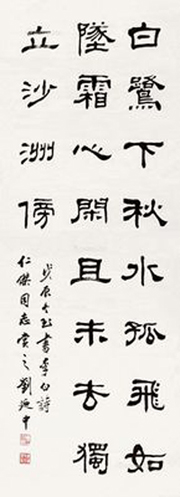 白鷺下秋水孤飛如
墜霜心閑且未去獨
立沙洲傍
戊辰冬月書李白詩
仁傑同志賞之劉延中